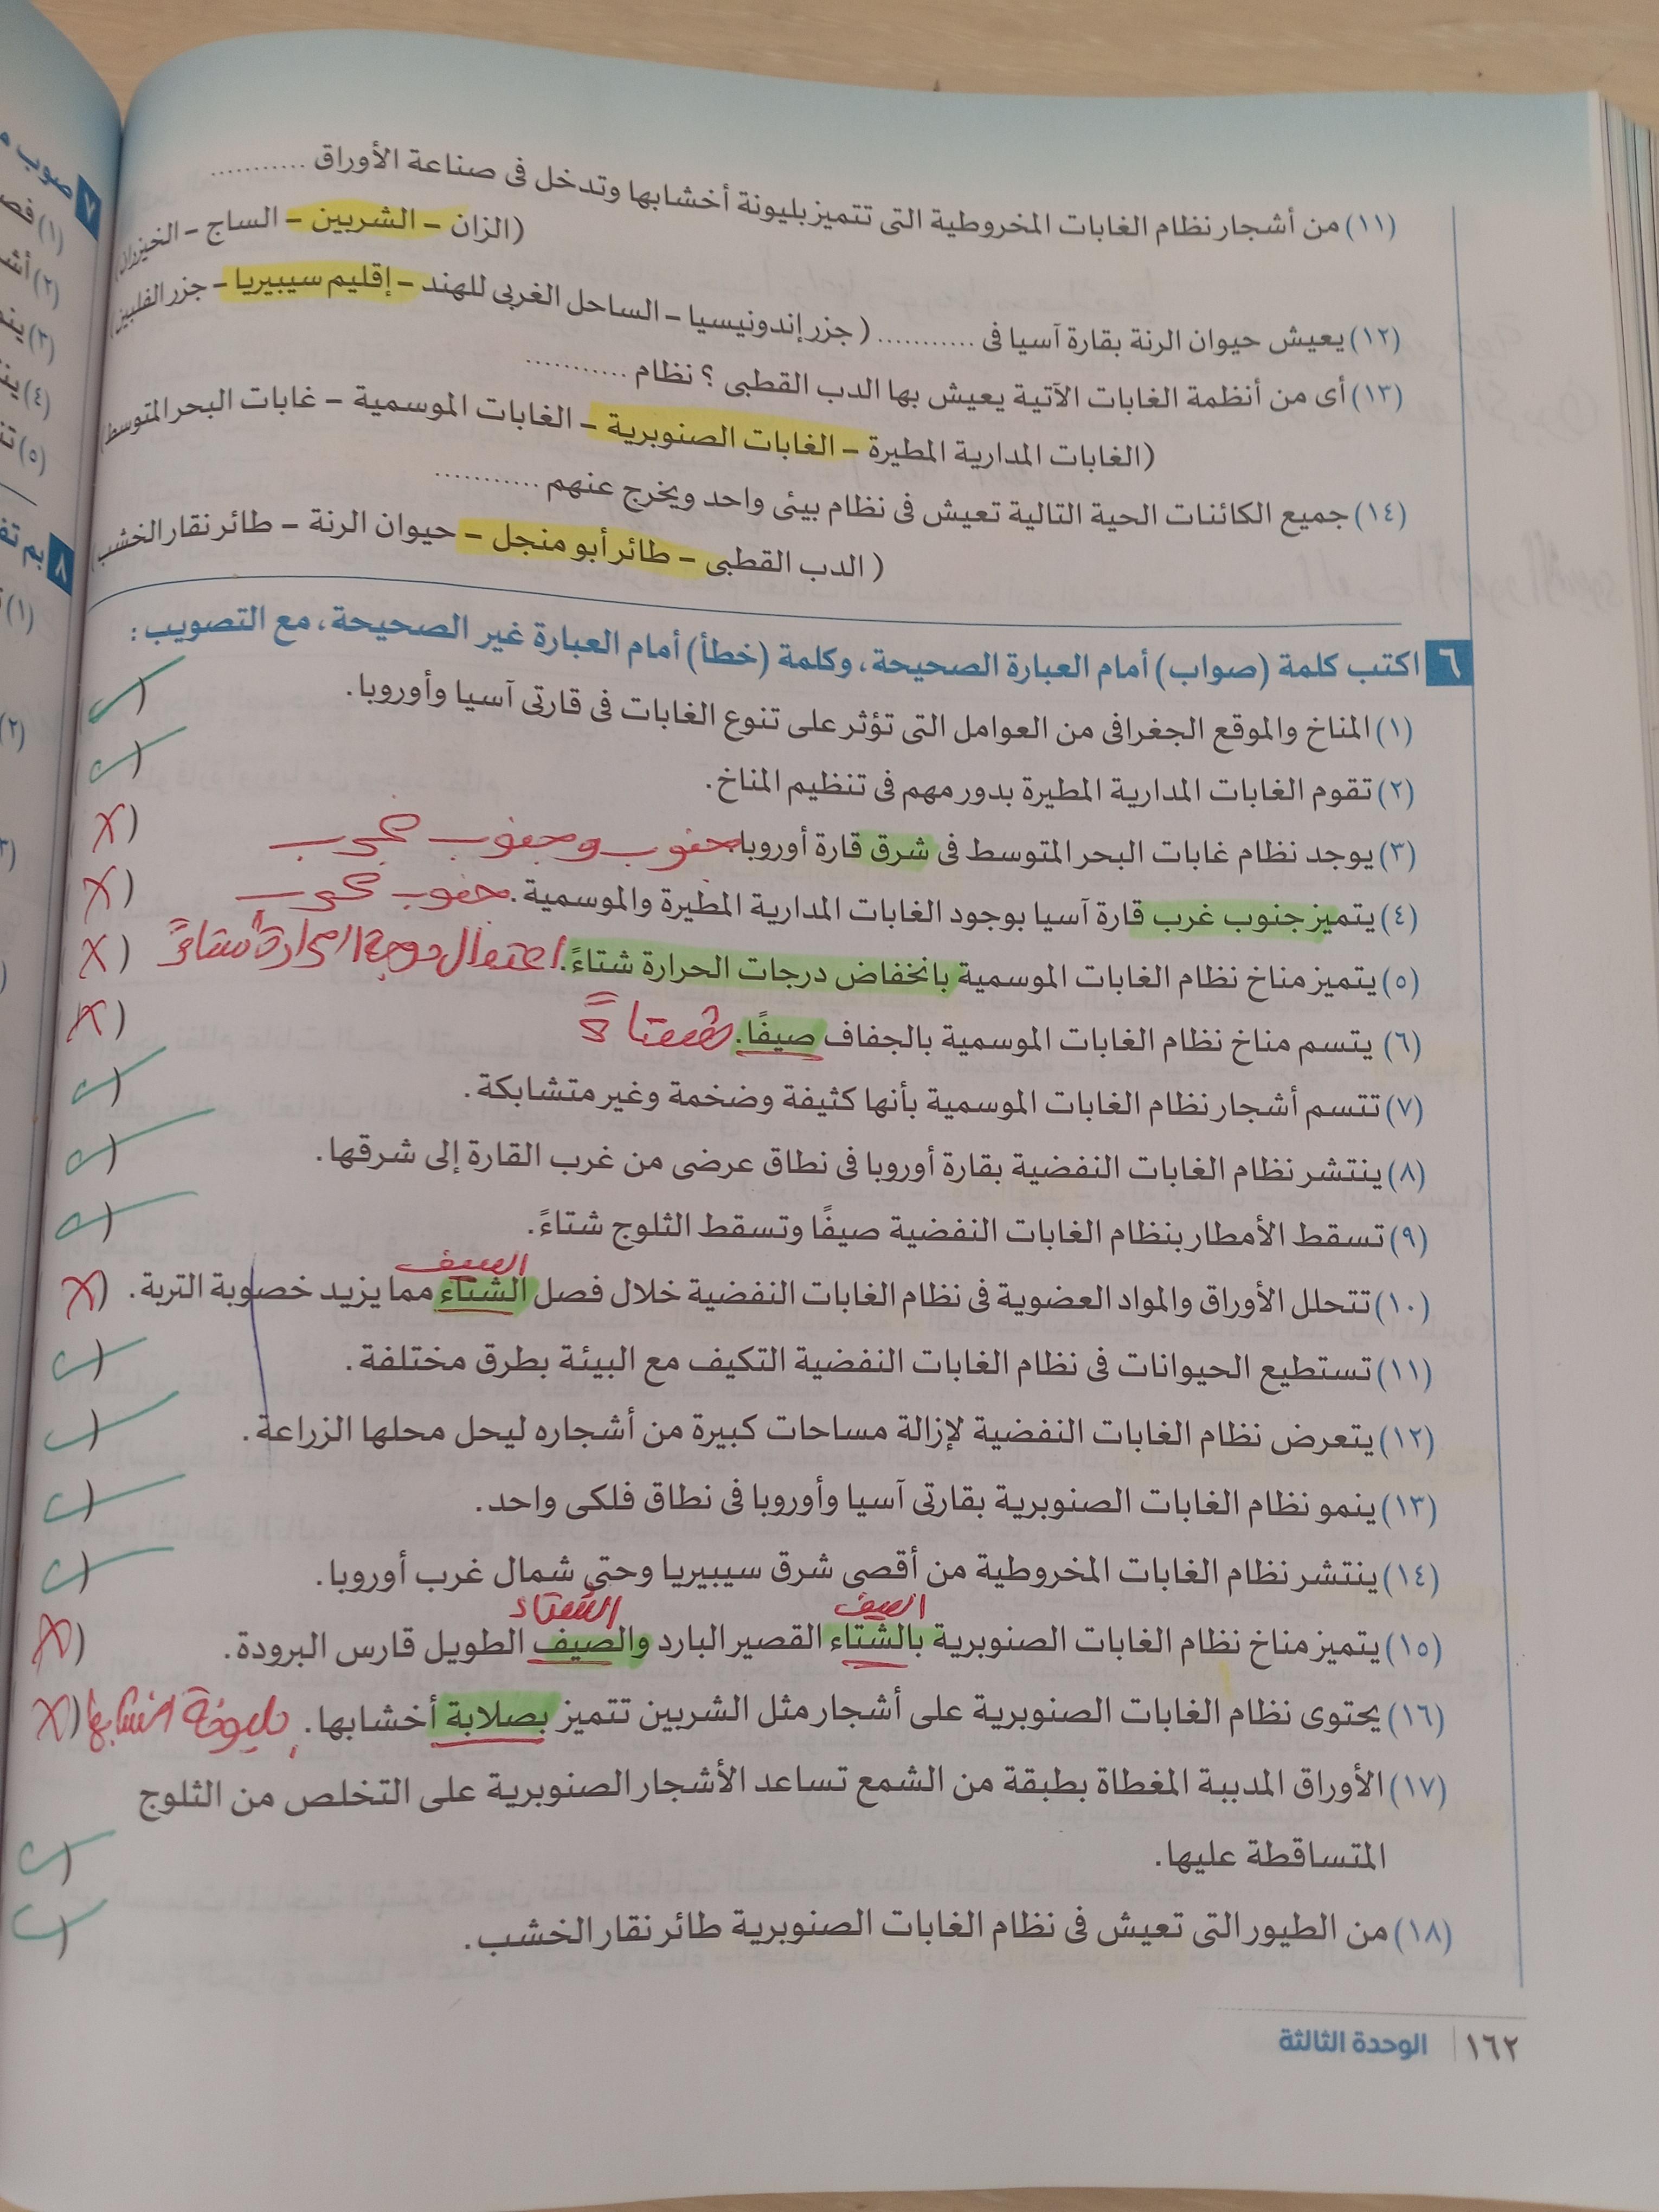 (١١) من أشجار نظام الغابات المخروطية التى تتميز بليونة أخشابها وتدخل فى صناعة الأوراق ...........
(الزان - الشربين - الساج - الخيزران)
(١٢) يعيش حيوان الرنة بقارة آسيا فى ........... (جزر إندونيسيا - الساحل الغربى للهند - إقليم سيبيريا - جزر الفلبين)
(١٣) أى من أنظمة الغابات الآتية يعيش بها الدب القطبى ؟ نظام ...........
(الغابات المدارية المطيرة - الغابات الصنوبرية - الغابات الموسمية - غابات البحر المتوسط)
(١٤) جميع الكائنات الحية التالية تعيش فى نظام بيئى واحد ويخرج عنهم ...........
(الدب القطبى - طائر أبو منجل - حيوان الرنة - طائر نقار الخشب)
٦ اكتب كلمة (صواب) أمام العبارة الصحيحة، وكلمة (خطأ) أمام العبارة غير الصحيحة، مع التصويب :
(١) المناخ والموقع الجغرافى من العوامل التى تؤثر على تنوع الغابات فى قارتى آسيا وأوروبا.
(٢) تقوم الغابات المدارية المطيرة بدور مهم فى تنظيم المناخ.
(٣) يوجد نظام غابات البحر المتوسط فى شرق قارة أوروبا. جنوب وجنوب غرب (X
(٤) يتميز جنوب غرب قارة آسيا بوجود الغابات المدارية المطيرة والموسمية. جنوب (X
(٥) يتميز مناخ نظام الغابات الموسمية بانخفاض درجات الحرارة شتاءً. اعتدال درجة الحرارة شتاءً (X
(٦) يتسم مناخ نظام الغابات الموسمية بالجفاف صيفًا. شتاءً (X
(٧) تتسم أشجار نظام الغابات الموسمية بأنها كثيفة وضخمة وغير متشابكة.
(٨) ينتشر نظام الغابات النفضية بقارة أوروبا فى نطاق عرضى من غرب القارة إلى شرقها.
(٩) تسقط الأمطار بنظام الغابات النفضية صيفًا وتسقط الثلوج شتاءً.
الصيف
(١٠) تتحلل الأوراق والمواد العضوية فى نظام الغابات النفضية خلال فصل الشتاء مما يزيد خصوبة التربة. (X
(١١) تستطيع الحيوانات فى نظام الغابات النفضية التكيف مع البيئة بطرق مختلفة.
(١٢) يتعرض نظام الغابات النفضية لإزالة مساحات كبيرة من أشجاره ليحل محلها الزراعة.
(١٣) ينمو نظام الغابات الصنوبرية بقارتى آسيا وأوروبا فى نطاق فلكى واحد.
(١٤) ينتشر نظام الغابات المخروطية من أقصى شرق سيبيريا وحتى شمال غرب أوروبا.
الصيف الشتاء
(١٥) يتميز مناخ نظام الغابات الصنوبرية بالشتاء القصير البارد والصيف الطويل قارس البرودة. (X
(١٦) يحتوى نظام الغابات الصنوبرية على أشجار مثل الشربين تتميز بصلابة أخشابها. بليونة اخشابها (X
(١٧) الأوراق المدببة المغطاة بطبقة من الشمع تساعد الأشجار الصنوبرية على التخلص من الثلوج
المتساقطة عليها.
(١٨) من الطيور التى تعيش فى نظام الغابات الصنوبرية طائر نقار الخشب.
١٦٢ | الوحدة الثالثة
٧ صوب
(١)
(٢)
(٣)
(٤)
(٥)
٨ بم
(١)
(٢)